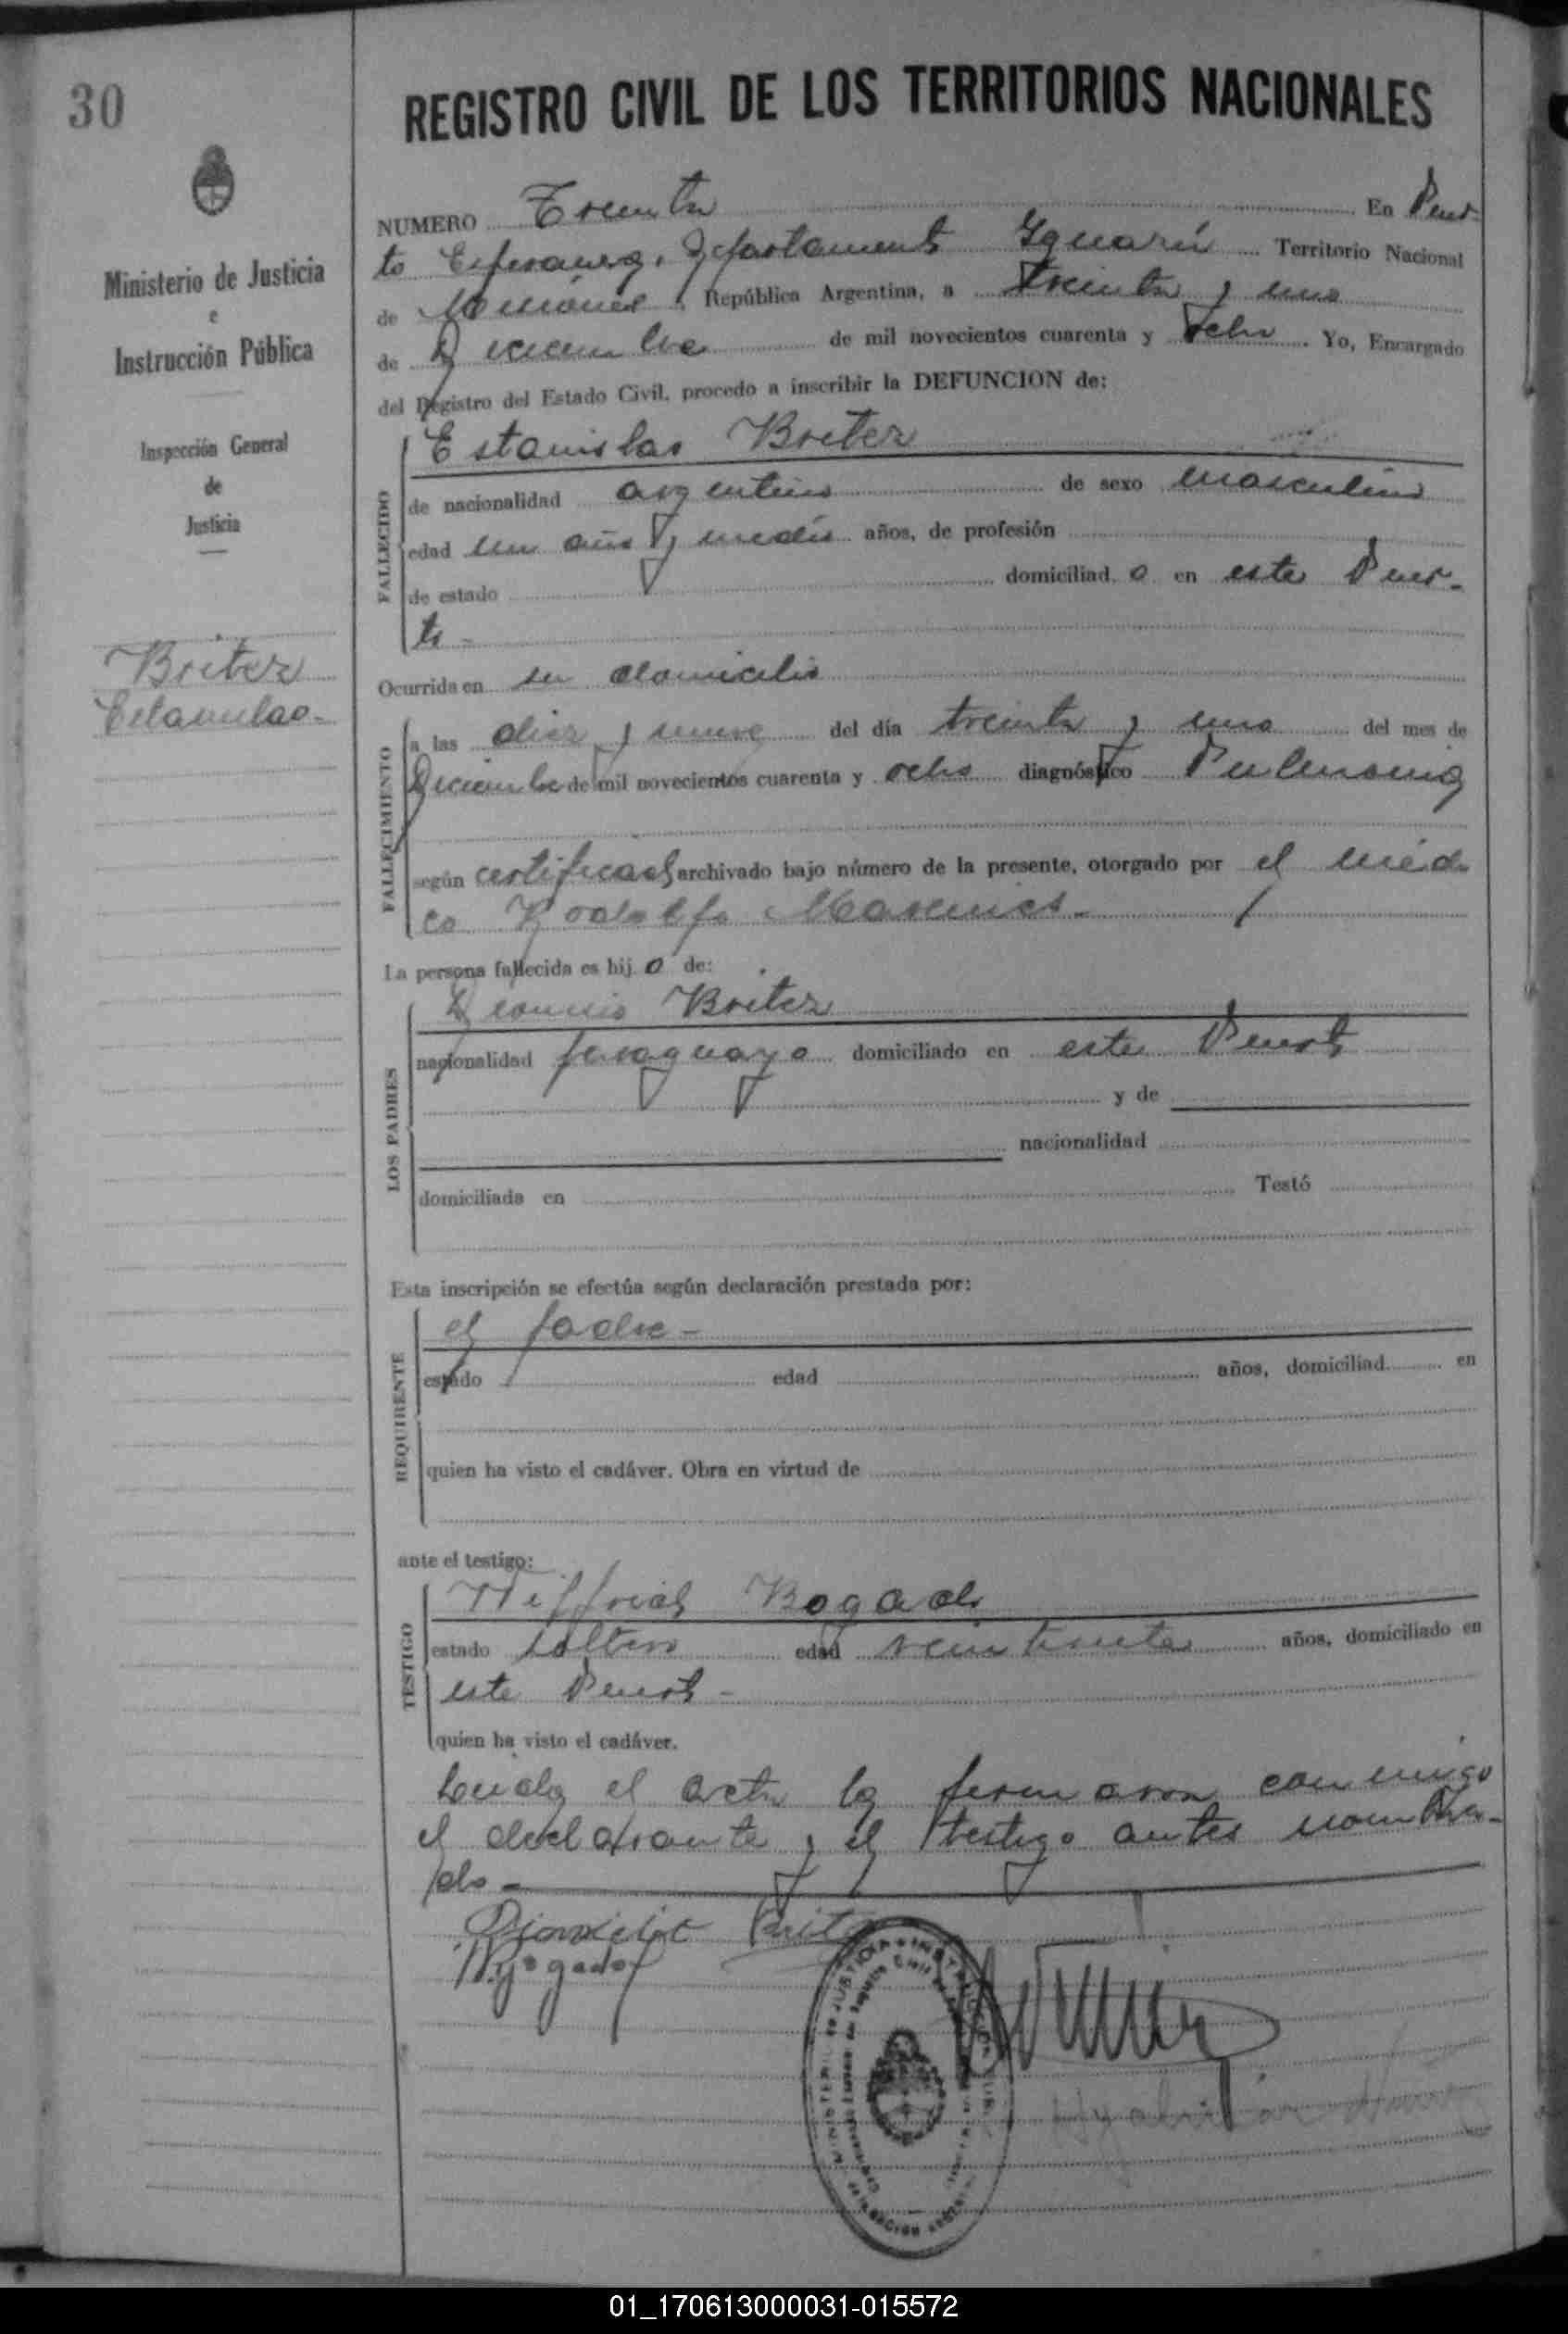 30
REGISTRO CIVIL DE LOS TERRITORIOS NACIONALES
Ministerio de Justicia
e
Instrucción Pública
Inspección General
de
Justicia
Briter
Estanislao-
NUMERO Treinta En Puer-
to Esperanza, Departamento Iguazú Territorio Nacional
de Misiones, República Argentina, a treinta y uno
de Diciembre de mil novecientos cuarenta y ocho. Yo, Encargado
del Registro del Estado Civil, procedo a inscribir la DEFUNCION de:
FALLECIDO
Estanislao Briter
de nacionalidad argentino de sexo masculino
edad un año y medio años, de profesión
de estado domiciliad o en este Puer-
to-
Ocurrida en su domicilio
FALLECIMIENTO
a las diez y nueve del día treinta y uno del mes de
Diciembre de mil novecientos cuarenta y ocho diagnóstico
según certificado archivado bajo número de la presente, otorgado por el médi
co Rodolfo
La persona fallecida es hij o de:
LOS PADRES
Briter
nacionalidad paraguayo domiciliado en este Puerto
y de
nacionalidad
domiciliada en Testó
Esta inscripción se efectúa según declaración prestada por:
REQUIRENTE
el padre-
estado edad años, domiciliad en
quien ha visto el cadáver. Obra en virtud de
ante el testigo:
TESTIGO
Bogado
estado soltero edad años, domiciliado en
este Puerto-
quien ha visto el cadáver.
Leida el acta la firmaron conmigo
el declarante y el testigo antes nombra-
do-
01_170613000031-015572